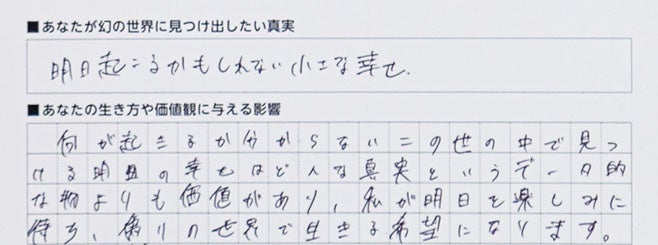 ■あなたが幻の世界に見つけ出したい真実
明日起こるかもしれない小さな幸せ.
■あなたの生き方や価値観に与える影響
何が起きるか分からないこの世の中で見つ
ける明日の幸せはどんな真実というデータ的
な物よりも価値があり、私が明日を楽しみに
待ち、偽りの世界で生きる希望になります。